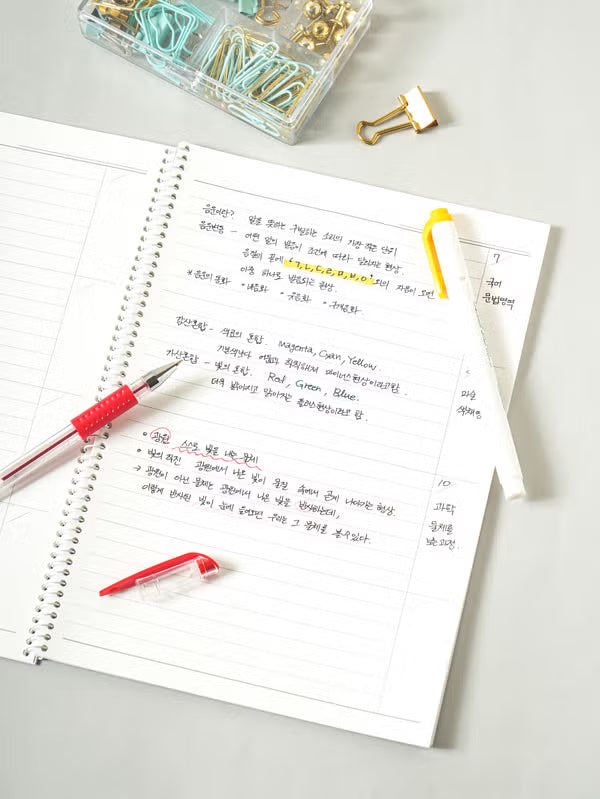 음운이란? 말을 뜻하는 구별되는 소리의 가장 작은 단위
음운변동 - 어떤 말의 발음이 조건에 따라 달라지는 현상.
음절의 끝에 'ㄱ,ㄴ,ㄷ,ㄹ,ㅁ,ㅂ,ㅇ' 외의 자음이 오면
이중 하나로 발음되는 현상.
* 음운의 동화 • 비음화 • 구개음화
7
국어
문법영역
감산혼합 - 색료의 혼합. Magenta, Cyan, Yellow.
기본색보다 어둡고 탁해지며 마이너스현상이라고 함.
가산혼합 - 빛의 혼합. Red, Green, Blue.
더욱 밝아지고 맑아지는 플러스현상이라고 함.
미술
o 광원 스스로 빛을 내는 물체
o 빛의 직진 광원에서 나온 빛이 물질 속에서 곧게 나아가는 현상.
→ 광원이 아닌 물체는 광원에서 나온 빛을 반사하는데,
이렇게 반사된 빛이 눈에 들어오면 우리는 그 물체를 볼수있다.
10
과학
물체를
보는과정.